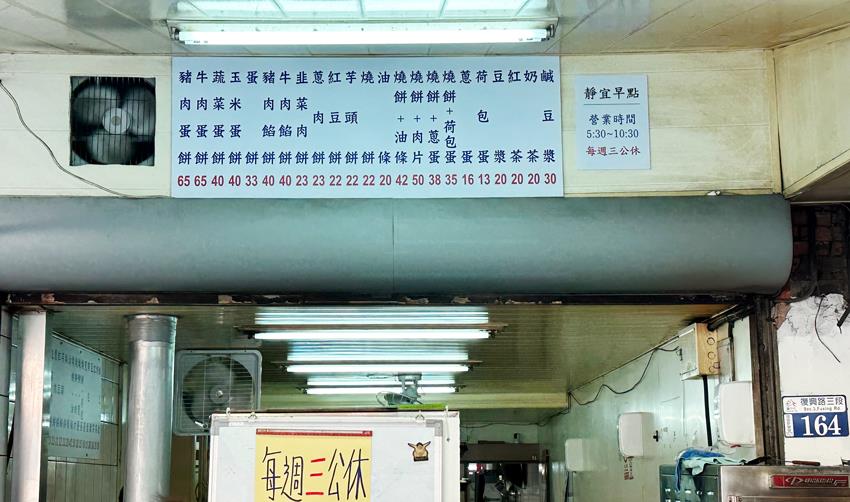 豬肉蛋餅 65
牛肉蛋餅 65
蔬菜蛋餅 40
玉米蛋餅 40
蛋餅 33
豬肉餡餅 40
牛肉餡餅 40
韭菜肉餅 23
蔥肉餅 23
紅豆餅 22
芋頭餅 22
燒餅 22
油條 20
燒餅+油條 42
燒餅+肉片 50
燒餅+蔥蛋 38
燒餅+荷包蛋 35
蔥蛋 16
荷包蛋 13
豆漿 20
紅茶 20
奶茶 20
鹹豆漿 30
靜宜早點
營業時間
5:30~10:30
每週三公休
每週三公休
復興路三段
Sec.3,Fuxing Rd.
164